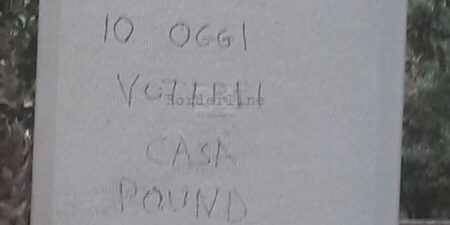 IO OGGI
VOTEREI
Borderline
CASA
POUND